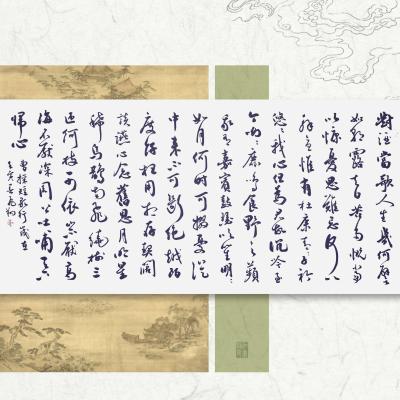 對酒當歌人生幾何譬
如朝露去日苦多慨當
以慷憂思難忘何以
解憂惟有杜康青青子衿
悠悠我心但為君故沉吟至
今呦呦鹿鳴食野之蘋
我有嘉賓鼓瑟吹笙明明
如月何時可掇憂從
中來不可斷絕越陌
度阡枉用相存契闊
談讌心念舊恩月明星
稀烏鵲南飛繞樹三
匝何枝可依山不厭高
海不厭深周公吐哺天下
歸心
曹操短歌行歲在
壬寅